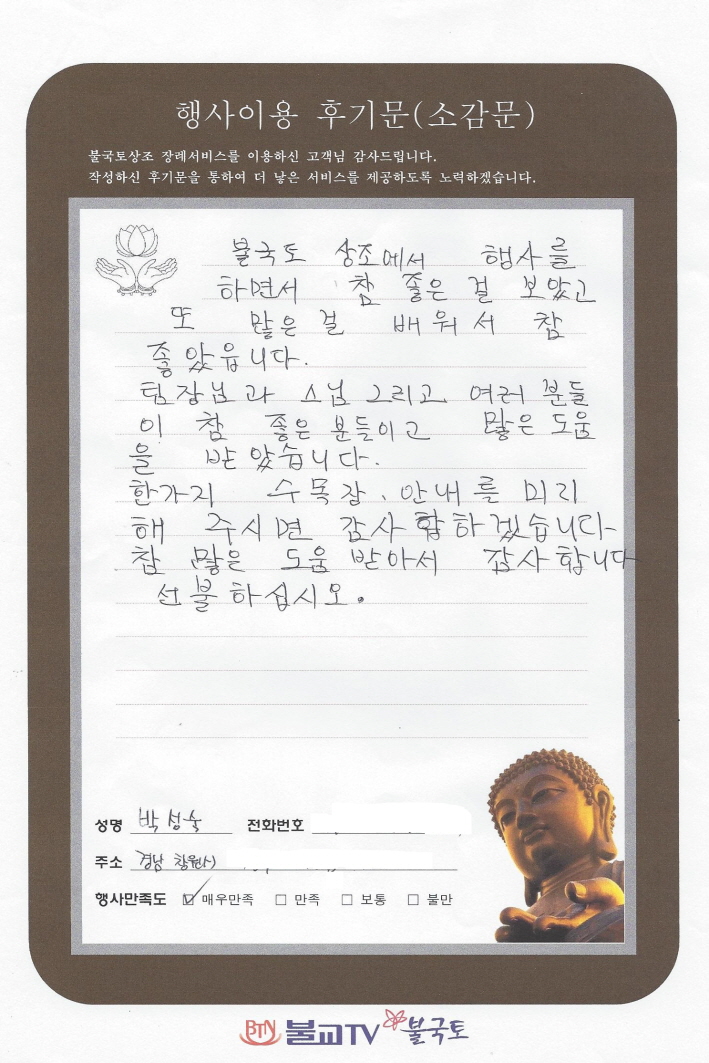 행사이용 후기문(소감문)
불국토상조 장례서비스를 이용하신 고객님 감사드립니다.
작성하신 후기문을 통하여 더 낳은 서비스를 제공하도록 노력하겠습니다.
불국도 상조에서 행사를
하면서 참 좋은 걸 보았고
또 많은 걸 배워서 참
좋았읍니다.
팀장님과 스님 그리고 여러 분들
이 참 좋은 분들이고 많은 도움
을 받았습니다.
한가지 수목장, 안내를 미리
해 주시면 감사합하겠습니다
참 많은 도움 받아서 감사합니다
선불하십시오.
성명 박성술 전화번호
주소 경남 창원시
행사만족도 ☑ 매우만족 □ 만족 □ 보통 □ 불만
BTN 불교TV 불국토